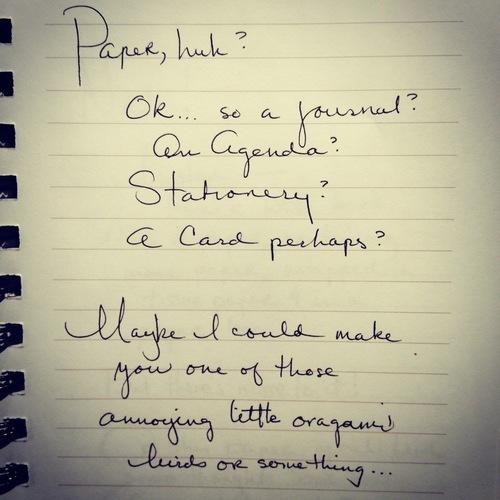 Paper, huh?
Ok... so a journal?
An Agenda?
Stationery?
A Card perhaps?
Maybe I could make
you one of those
annoying little oragami
birds or something...